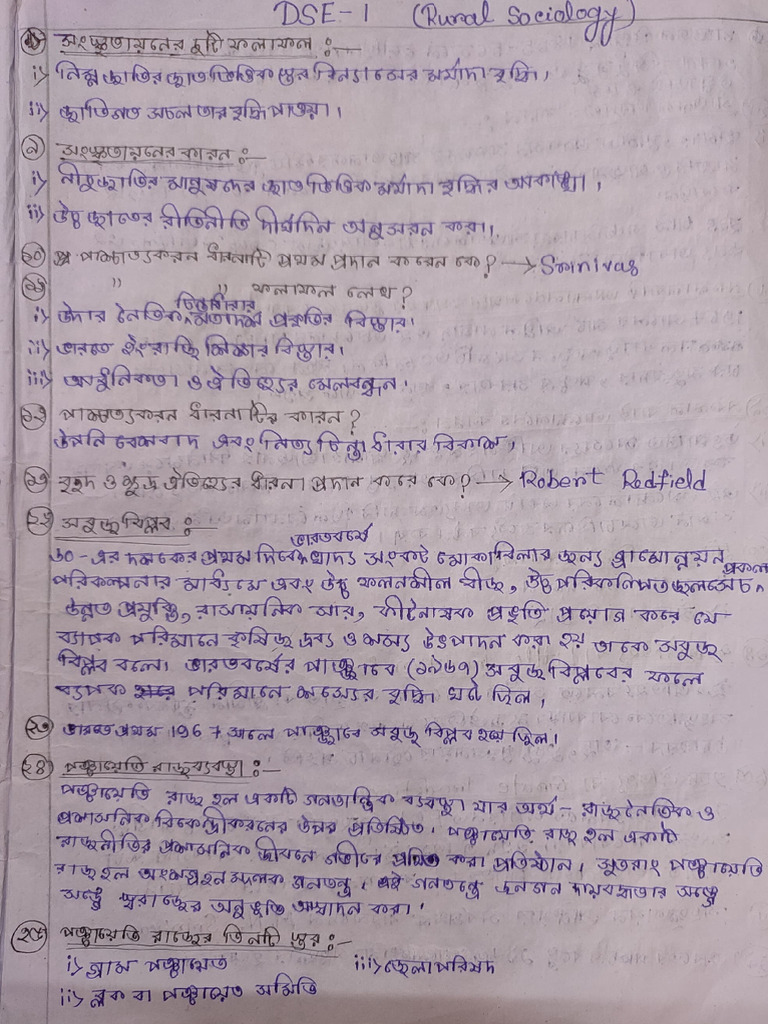 DSE-1 (Rural Sociology)
সংস্কৃতায়নের দুটি ফলাফল :-
i) নিম্ন জাতির জাত ভিত্তিক স্তর বিন্যাসের মর্যাদা বৃদ্ধি।
ii) জাতিগত সচলতার বৃদ্ধি পাওয়া।
৯) সংস্কৃতায়নের কারন :-
i) নীচু জাতির মানুষদের জাত ভিত্তিক মর্যাদা বৃদ্ধির আকাঙ্খা।
ii) উচ্চ জাতের রীতিনীতি দীর্ঘদিন অনুসরন করা।
২০) পাশ্চাত্যকরন ধারনাটি প্রথম প্রদান করেন কে? → Srinivas
" " ফলাফল লেখ?
i) উদার নৈতিক চিন্তাধারার মতাদর্শ প্রভৃতির বিস্তার।
ii) ভারতে ইংরাজি শিক্ষার বিস্তার।
iii) আধুনিকতা ও ঐতিহ্যের মেলবন্ধন।
পাশ্চাত্যকরন ধারনাটির কারন?
উপনিবেশবাদ এবং নিত্য চিন্তা ধারার বিকাশ।
বৃহৎ ও ক্ষুদ্র ঐতিহ্যের ধারনা প্রদান করে কে? → Robert Redfield
২২) সবুজ বিপ্লব :-
৬০-এর দশকের প্রথম দিকে ভারতবর্ষে খাদ্য সংকট মোকাবিলার জন্য গ্রামোন্নয়ন প্রকল্প
পরিকল্পনার মাধ্যমে এবং উচ্চ ফলনশীল বীজ, উচ্চ পরিকল্পিত জলসেচ,
উন্নত প্রযুক্তি, রাসায়নিক সার, কীটনাশক প্রভৃতি প্রয়োগ করে যে
ব্যাপক পরিমানে কৃষিজ দ্রব্য ও শস্য উৎপাদন করা হয় তাকে সবুজ
বিপ্লব বলে। ভারতবর্ষের পাঞ্জাবে (১৯৬৭) সবুজ বিপ্লবের ফলে
ব্যাপক পরিমানে শস্যের বৃদ্ধি ঘটে ছিল।
২৩) ভারতে প্রথম 1967 সালে পাঞ্জাবে সবুজ বিপ্লব হয়ে ছিল।
২৪) পঞ্চায়েতি রাজব্যবস্থা :-
পঞ্চায়েতি রাজ হল একটি গনতান্ত্রিক ব্যবস্থা। যার অর্থ - রাজনৈতিক ও
প্রশাসনিক বিকেন্দ্রীকরনের উপর প্রতিষ্ঠিত। পঞ্চায়েতি রাজ হল একটি
রাজনীতির প্রশাসনিক জীবনে গভীরে প্রথিত করা প্রতিষ্ঠান। সুতরাং পঞ্চায়েতি
রাজ হল অংশগ্রহনমূলক গনতন্ত্র। এই গনতন্ত্রে জনগন দায়বদ্ধতার সঙ্গে
সঙ্গে স্বরাজের অনুভূতি আস্বাদন করা।
২৫) পঞ্চায়েতি রাজের তিনটি স্তর :-
i) গ্রাম পঞ্চায়েত iii) জেলা পরিষদ
ii) ব্লক বা পঞ্চায়েত সমিতি